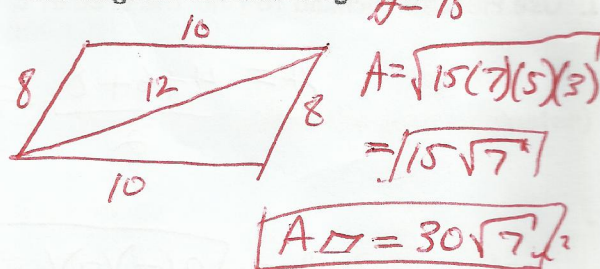 10
8
12
8
10
A = √15(7)(5)(3)
= 15√7
A▱ = 30√7